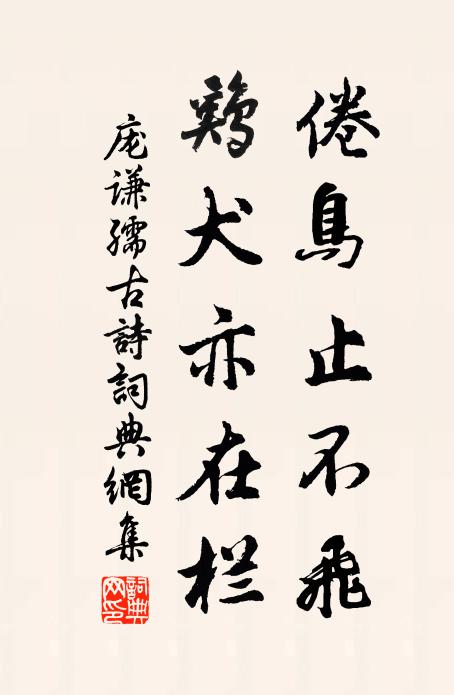 倦鳥止不飛
鷄犬亦在栏
庞谦孺古詩詞典網集
詞典网印